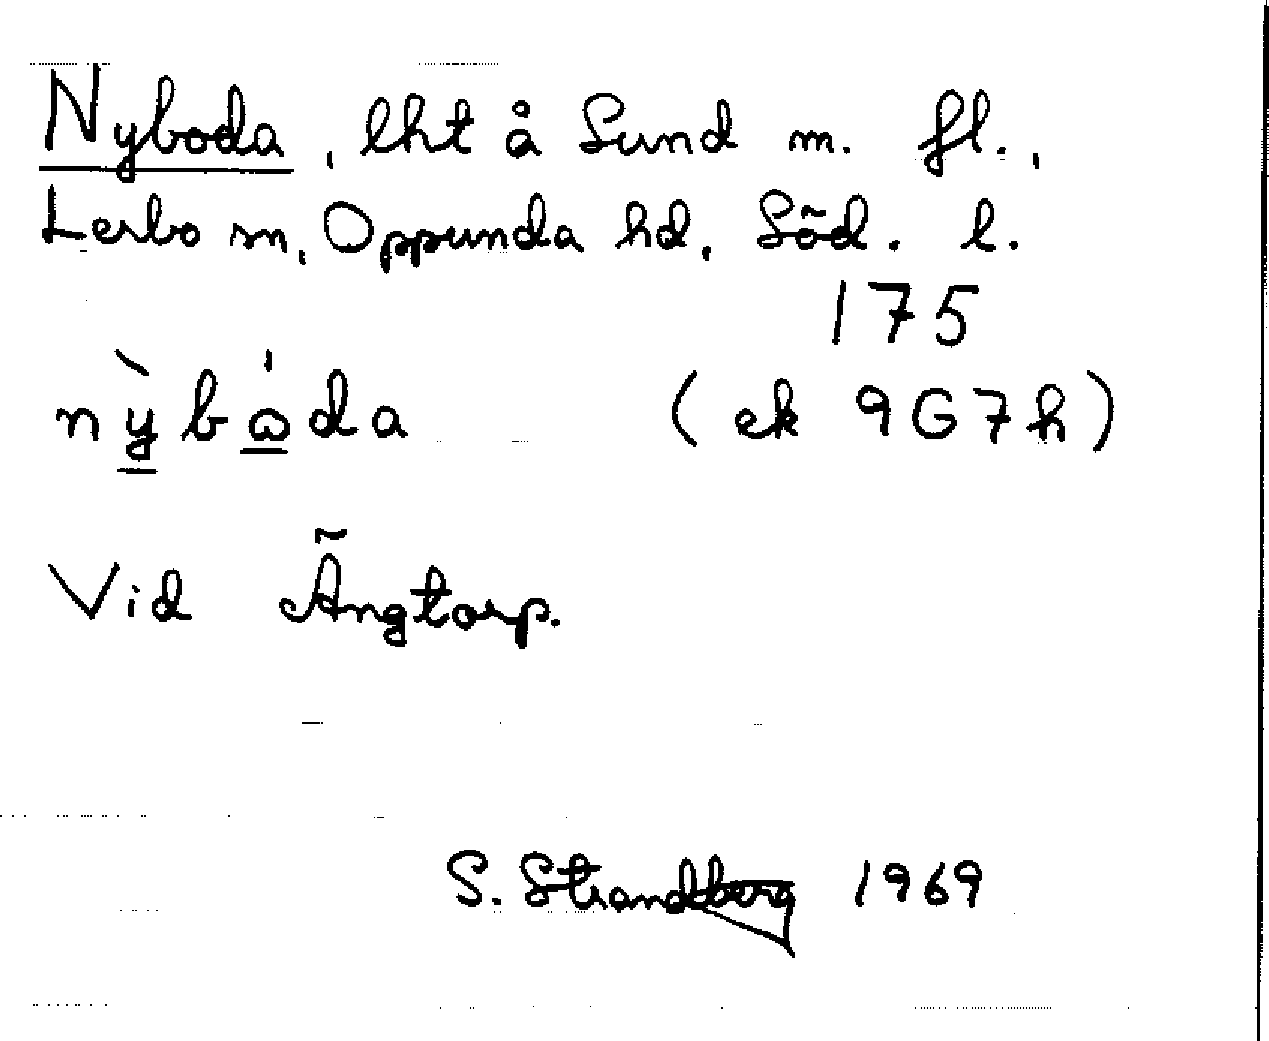 Nyboda, lht å Sund m. fl.,
Lerbo sn, Oppunda hd, Söd. l.
175
nỳbɷ̀da (ek 9G7h)
Vid Ängtorp.
S. Strandberg 1969